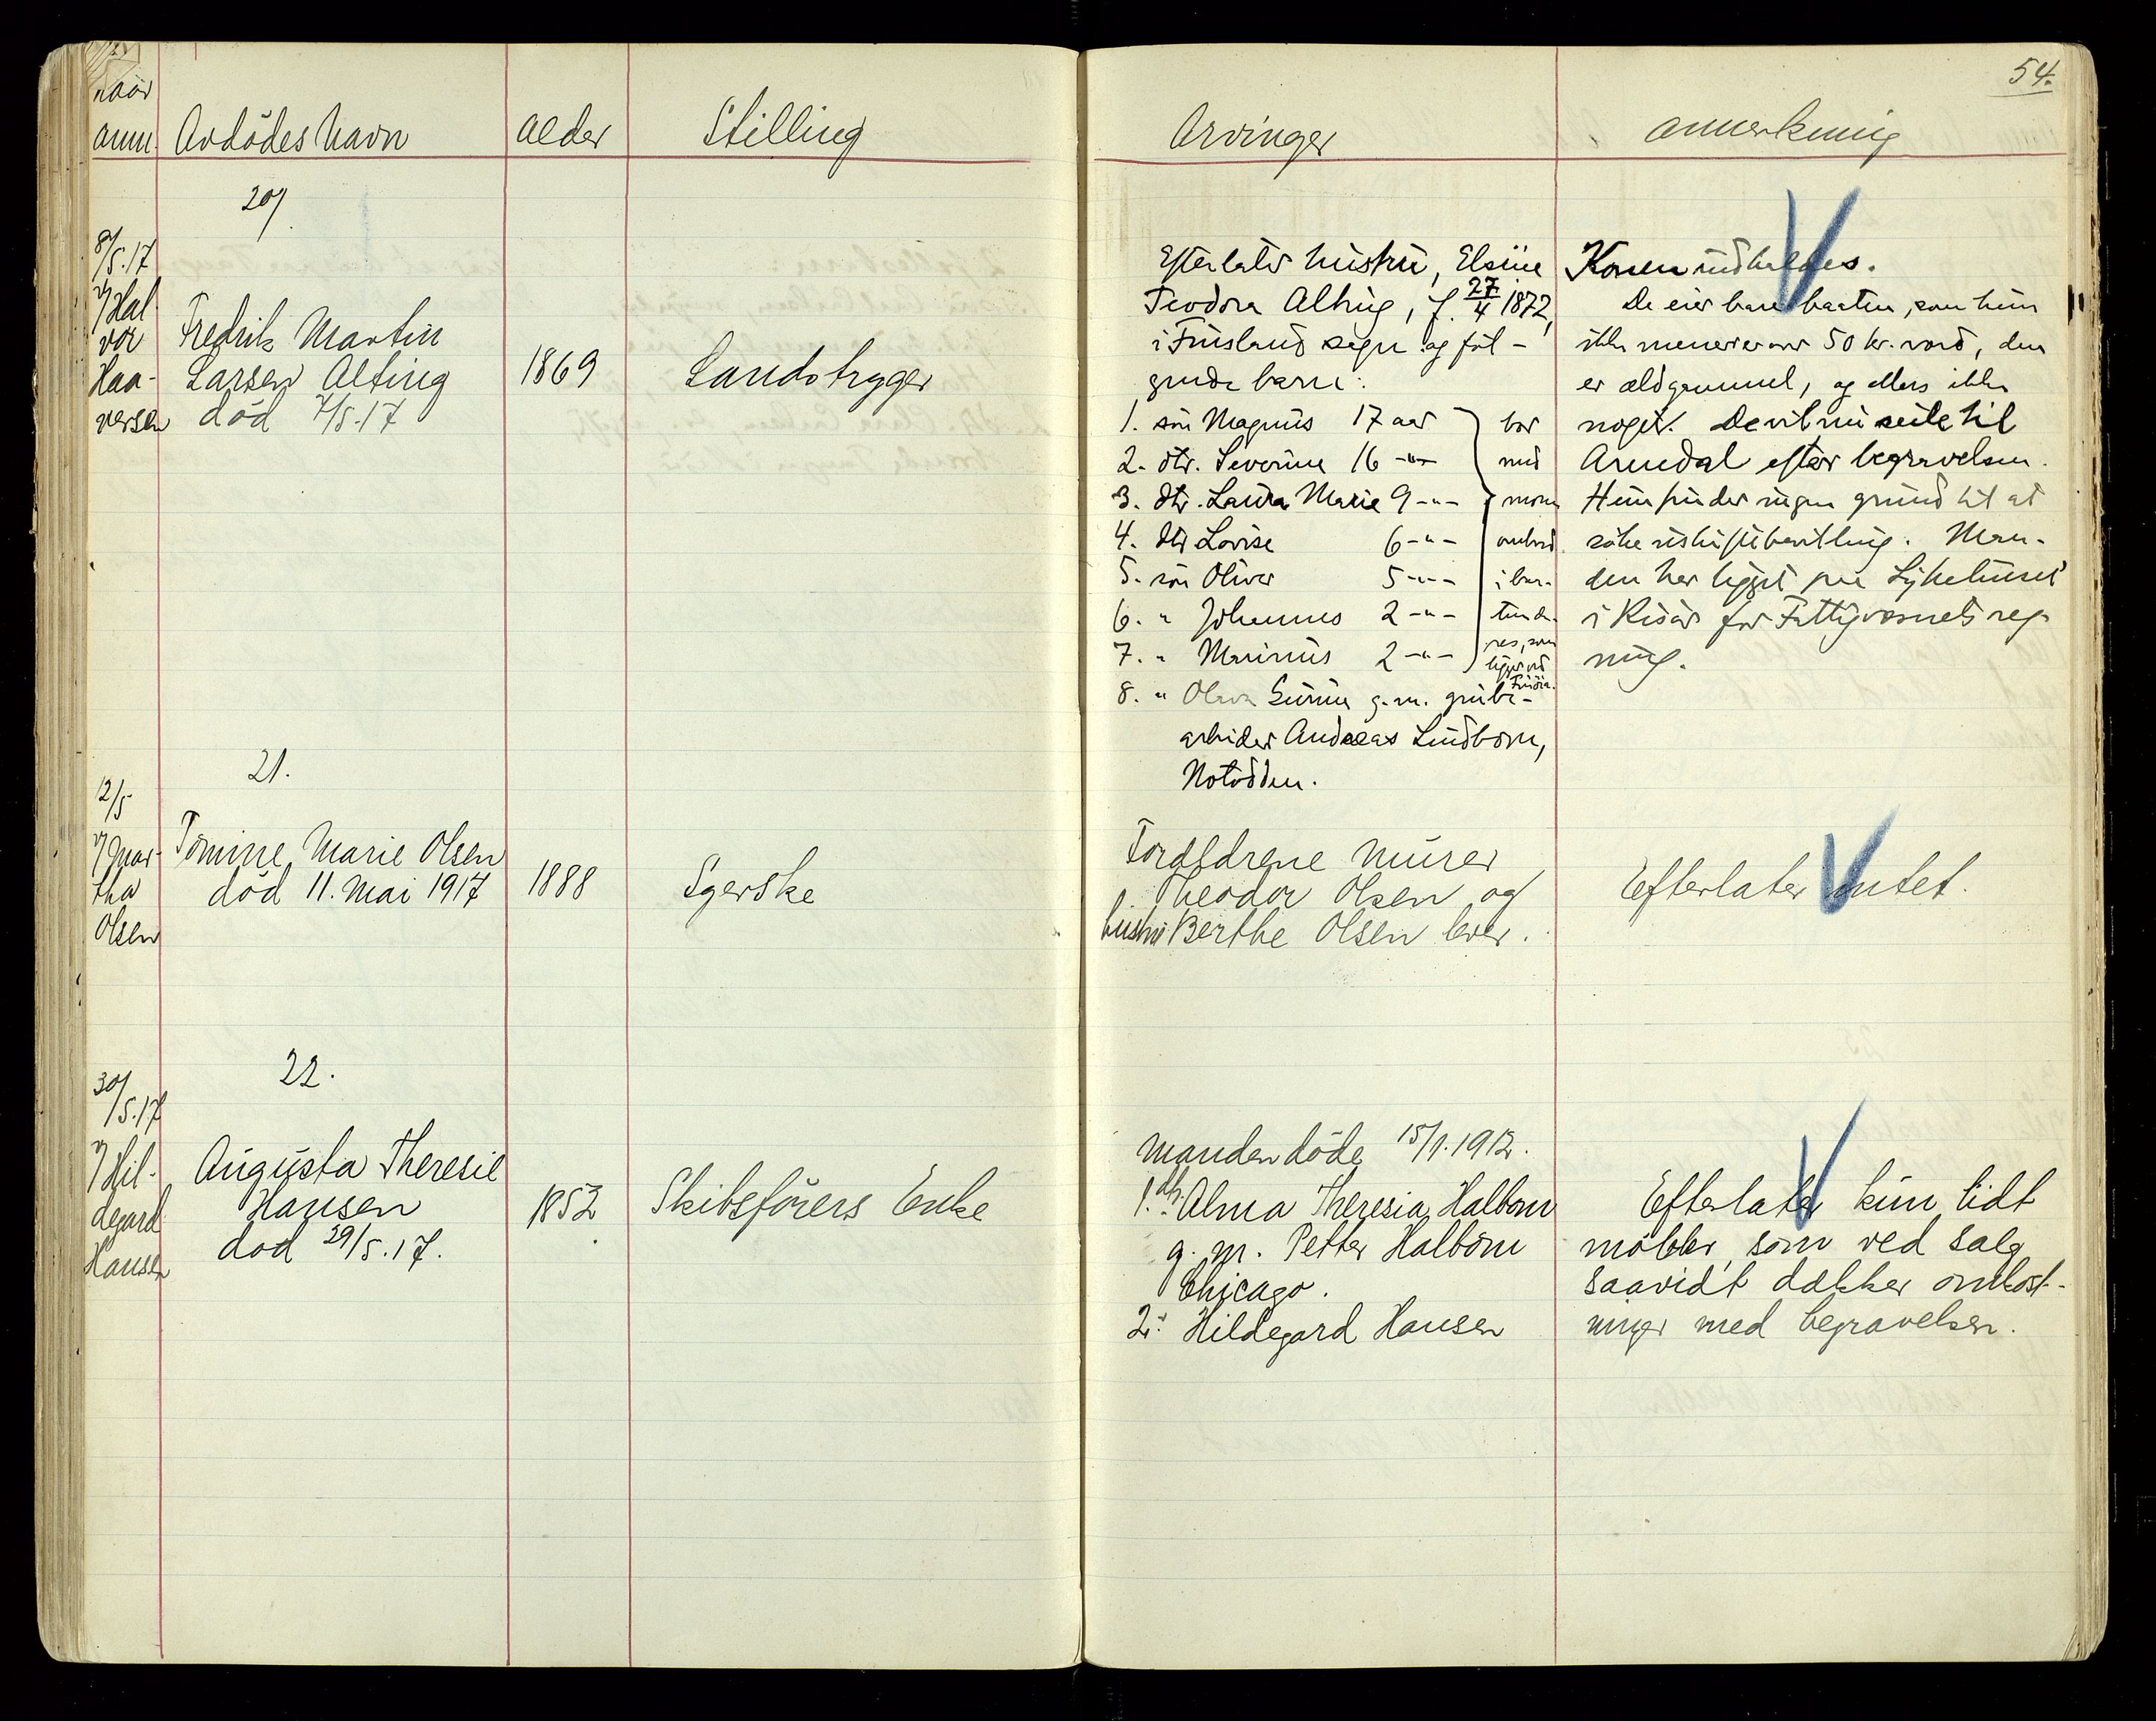 54.
naar
anm. Avdödes Navn alder Stilling Arvinger anmerkning
20/
8/5.17
v/ Hal
vor
Haa-
versen
Fredrik Martin
Larsen Alting
död 7/5.17
1869
Landstryger
Efterlater hustru, Elsine
Teodora Alting, f. 27/4 1872,
i Finsland sogn og föl-
gende barn:
1. sön Magnus 17 aar
2. dtr. Severine 16 -"-
3. dtr. Laura Marie 9 -"-
4. dtr Lovise 6 -"-
5. sön Oliver 5 -"-
6. " Johannes 2 -"-
7. " Marinus 2 -"-
bor
med
moren
ombord
i baa-
ten de-
res, som
ligger ved
8. " Olava g.m. grube-
arbeider Andreas Lindbom,
Notodden.
Konen indkaldes.
De eier bare baaten, som hun
ikke mener er over 50 kr. verd, den
er ældgammel, og ellers ikke
noget. De vil nu seile til
Arendal efter begravelsen.
Hun finder ingen grund til at
söke uskiftebevilling. Man-
den har ligget paa Sykehuset
i Risör for Fattigvæsnets reg-
ning.
21.
12/5
v/ Mar-
tha
Olsen
Tomine Marie Olsen
död 11. Mai 1917
1888
Syerske
Forældrene Murer
Theodor Olsen og
hustru Berthe Olsen lever.
Efterlater intet.
22.
30/5.17
v/ Hil-
degard
Hansen
Augusta Theresie
Hansen
död 29/5.17.
1852
Skibsförers Enke
Manden döde 15/1.1912.
1. dtr. Alma Theresia Halbom
g. m. Petter Halbom
Chicago.
2. " Hildegard Hansen
Efterlater kun lidt
möbler, som ved salg
saavidt dækker omkost-
ninger med begravelsen.